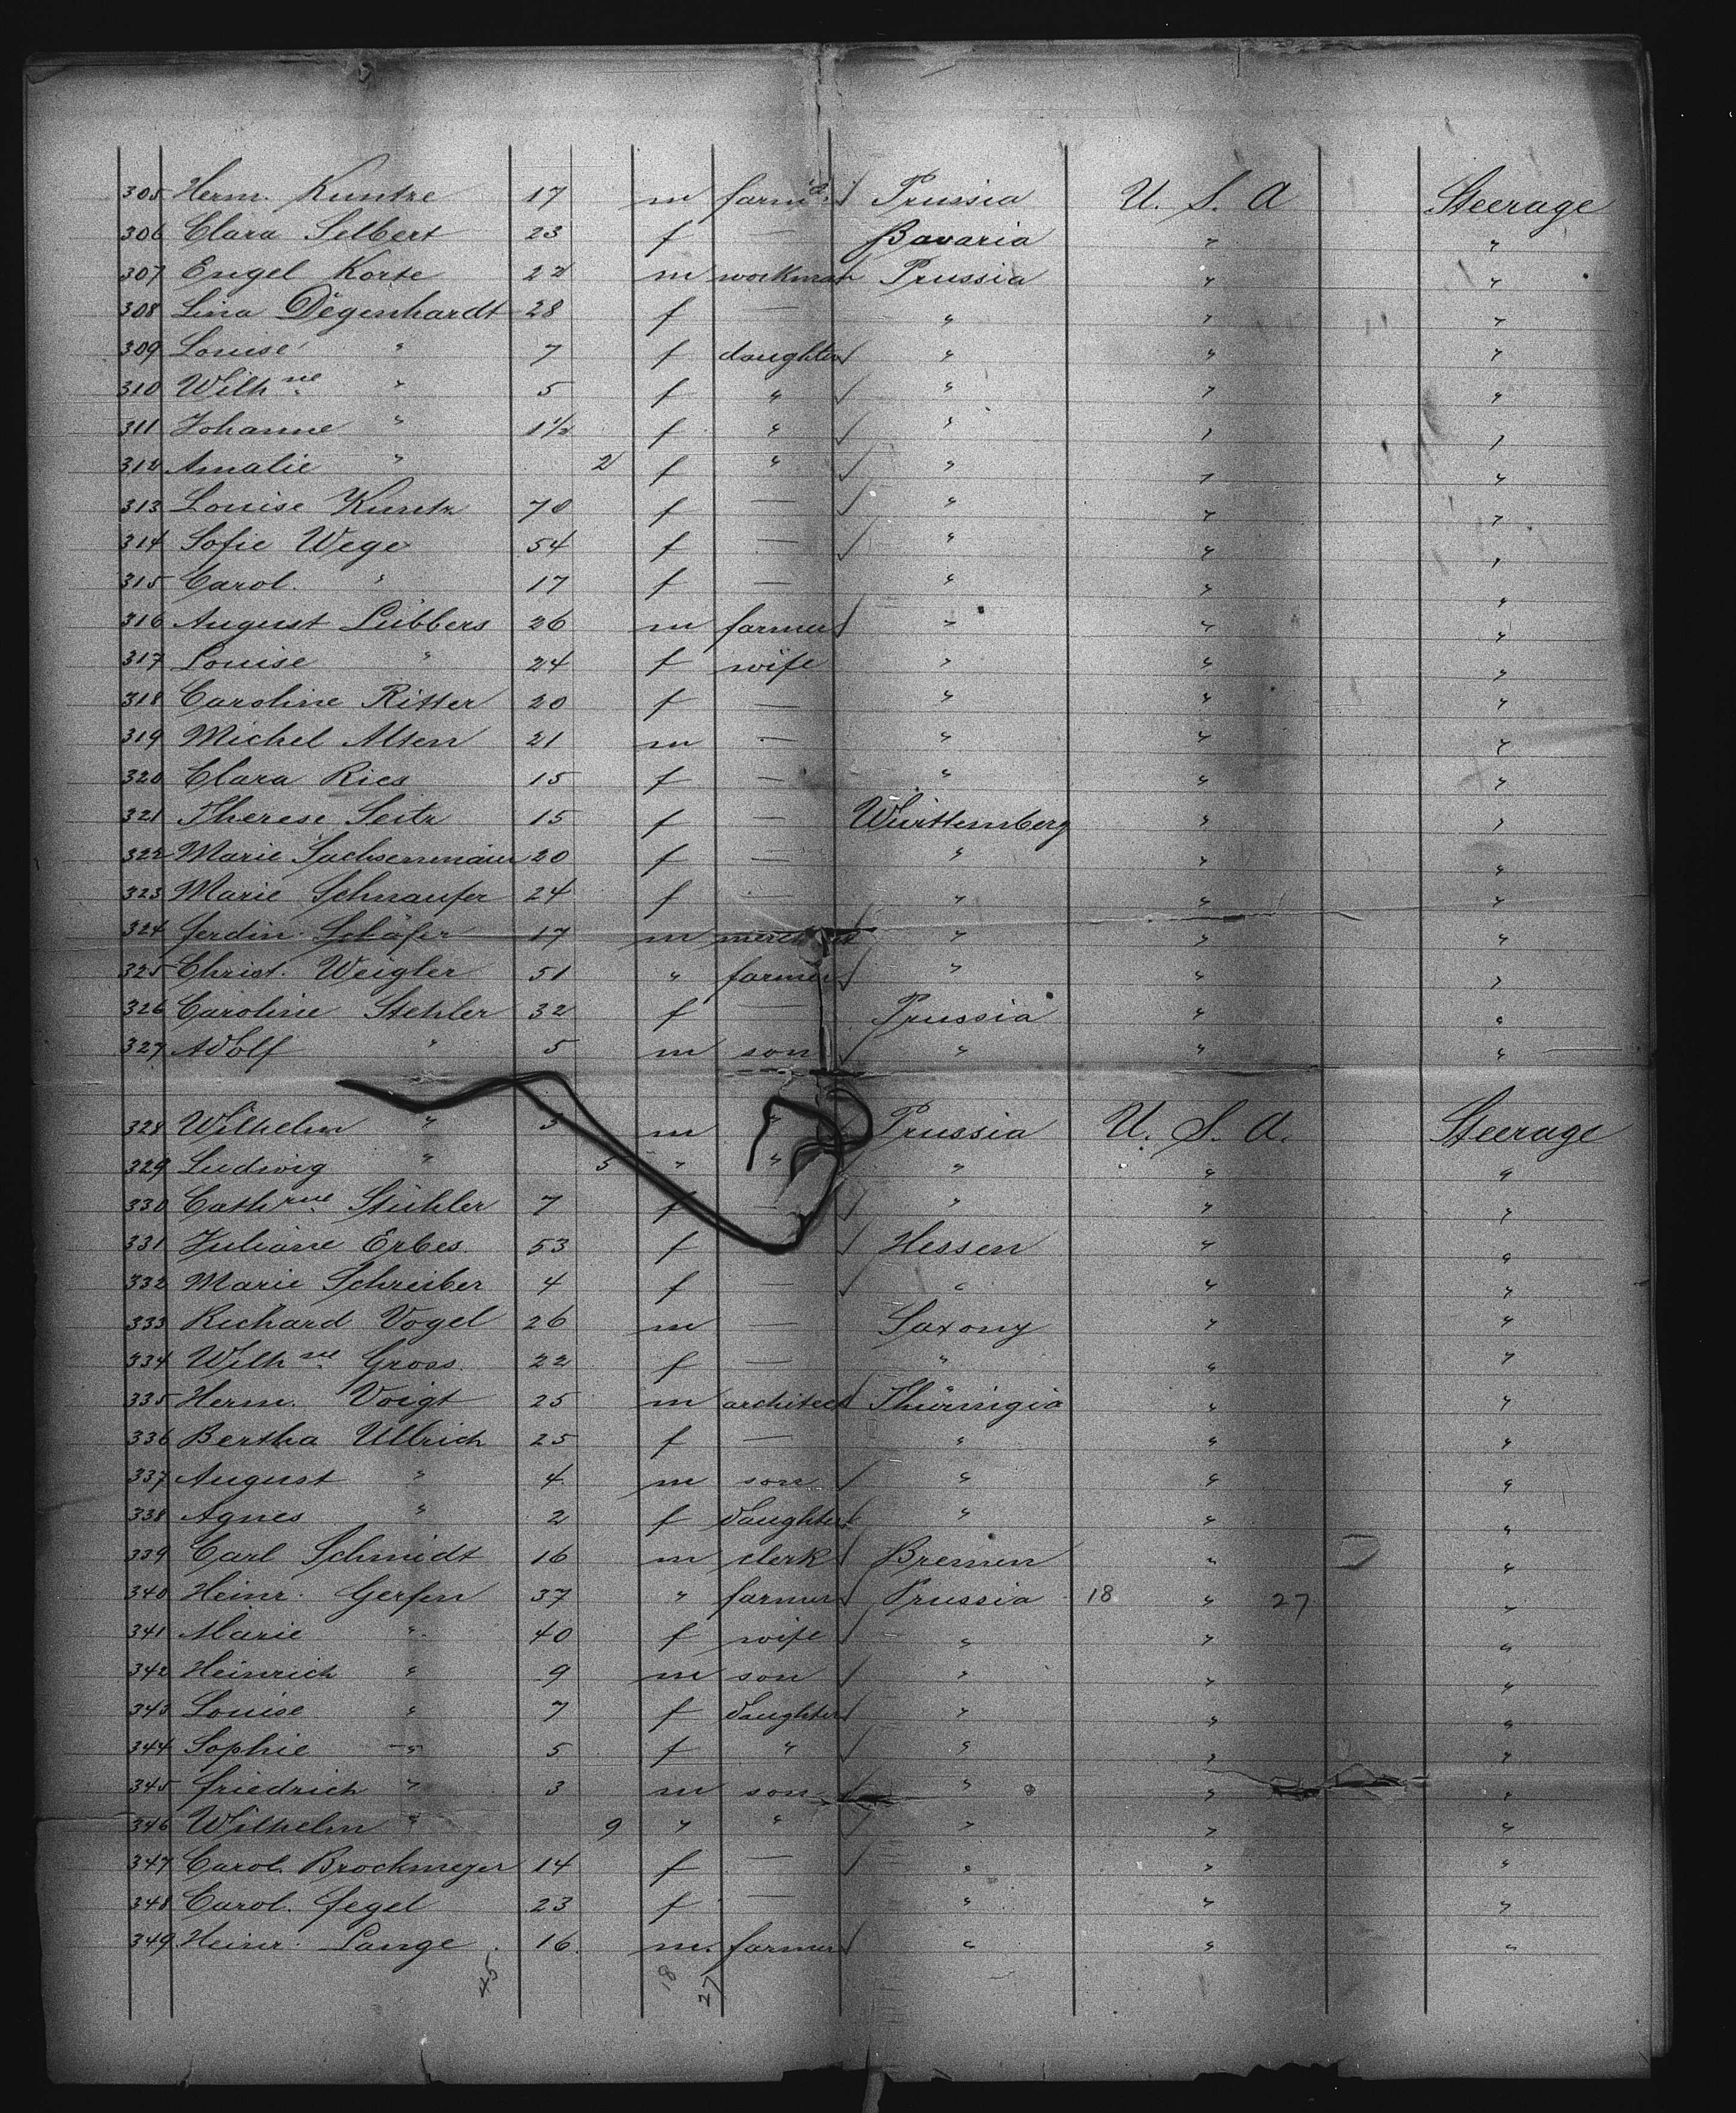 305 Herm. Kuntze 17 m farm Prussia U. S. A Steerage
306 Clara Selbert 23 f — Bavaria " "
307 Engel Korte 22 m workman Prussia " "
308 Lina Degenhardt 28 f — " " "
309 Louise " 7 f daughter " " "
310 Wilhne " 5 f " " " "
311 Johanne " 1½ f " " " "
312 Amalie " 2 f " " " "
313 Louise Kuntz 70 f — " " "
314 Sofie Wege 54 f — " " "
315 Carol. " 17 f — " " "
316 August Lübbers 26 m farmer " " "
317 Louise " 24 f wife " " "
318 Caroline Ritter 20 f — " " "
319 Michel Alten 21 m — " " "
320 Clara Ries 15 f — " " "
321 Therese Seitz 15 f — Württemberg " "
322 Marie Sachsenmaier 20 f — " " "
323 Marie Schnaufer 24 f — " " "
324 Ferdin. Schäfer 17 m " " "
325 Christ. Weigler 51 " farmer " " "
326 Caroline Stehler 32 f — Prussia " "
327 Adolf " 5 m son " " "
328 Wilhelm " 3 m " Prussia U. S. A. Steerage
329 Ludwig " 5 " " " " "
330 Cathrne Stühler 7 f — " " "
331 Juliane Erbes 53 f Hessen " "
332 Marie Schreiber 4 f — " " "
333 Richard Vogel 26 m — Saxony " "
334 Wilhne Gross 22 f — " " "
335 Herm. Voigt 25 m architect Thüringia " "
336 Bertha Ullrich 25 f — " " "
337 August " 4 m son " " "
338 Agnes " 2 f daughter " " "
339 Carl Schmidt 16 m clerk Bremen " "
340 Heinr. Gerfen 37 " farmer Prussia 18 " 27 "
341 Marie " 40 f wife " " "
342 Heinrich " 9 m son " " "
343 Louise " 7 f daughter " " "
344 Sophie " 5 f " " " "
345 Friedrich " 3 m son " " "
346 Wilhelm " 9 " " " " "
347 Carol. Brockmeyer 14 f — " " "
348 Carol. Fegel 23 f — " " "
349 Heinr. Lange 16 m. farmer " " "
45 18 27